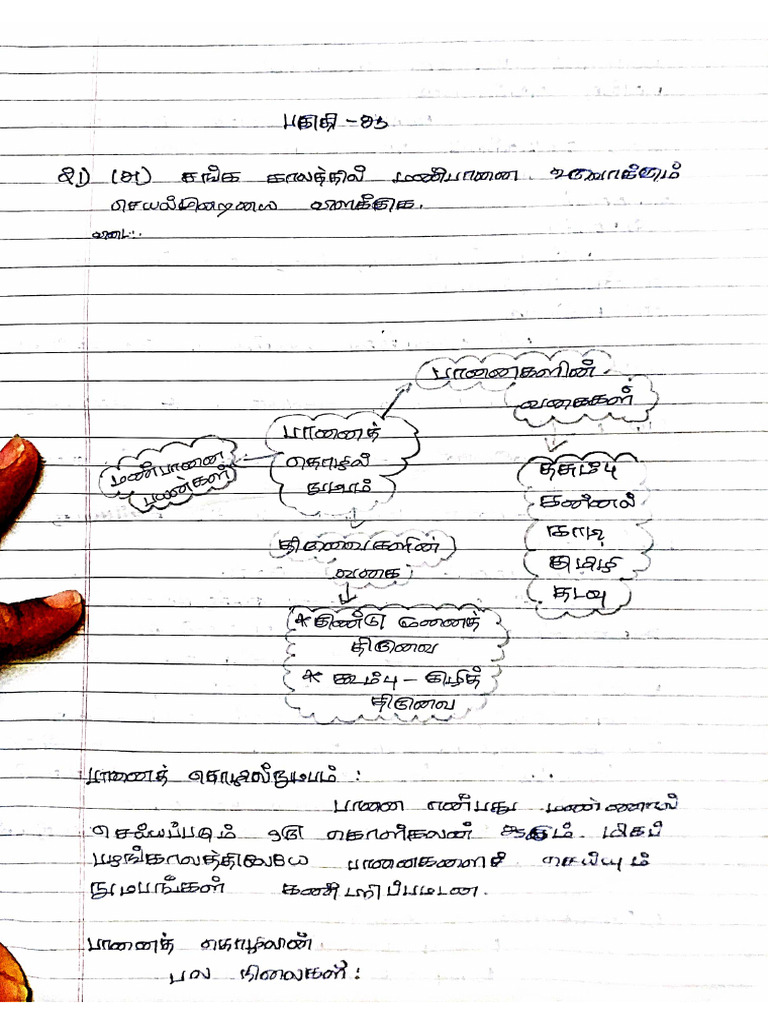 பகுதி - ஈ
21) (அ) சங்க காலத்தில் மண்பானை உருவாக்கும்
செயல்முறையை விளக்குக.
விடை:
பானைகளின்
வகைகள்
பானைத்
தொழில்
நுட்பம்
மண்பானை
பயன்கள்
தசும்பு
கன்னல்
காடி
குழிசி
தடவு
திருவைகளின்
வகை
* குண்டு முனைத்
திருவை
* கூம்பு - குழித்
திருவை
பானைத் தொழில்நுட்பம் :
பானை என்பது மண்ணால்
செய்யப்படும் ஒரு கொள்கலன் ஆகும். மிகப்
பழங்காலத்திலேயே பானைகளைச் செய்யும்
நுட்பங்கள் கண்டறியப்பட்டன.
பானைத் தொழிலின்
பல நிலைகள் :